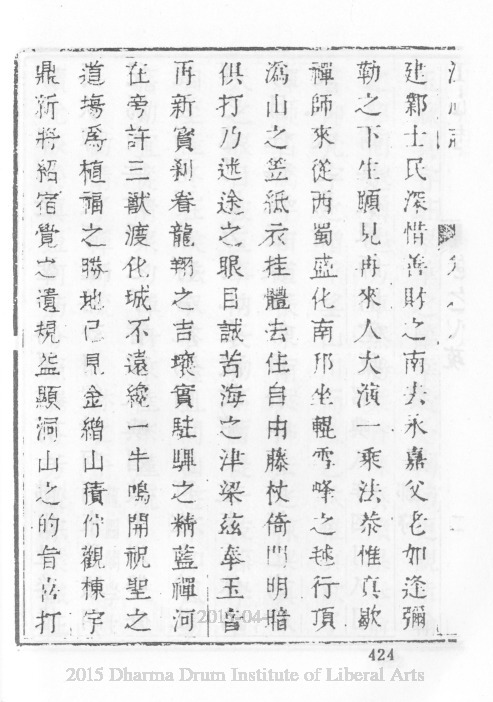 江心志 卷之
建鄴士民深惜善財之南去永嘉父老如逢彌
勒之下生願見再來人大演一乘法恭惟真歇
禪師來從西蜀盛化南邦坐輥雪峰之毬行頂
溈山之笠紙衣挂體去住自由藤杖倚門明暗
俱打乃迷途之眼目誠苦海之津梁茲奉玉音
再新寶刹眷龍翔之吉壤實駐驆之精藍禪河
在旁許三獸渡化城不遠纔一牛鳴開祝聖之
道場為植福之勝地已見金繒山積佇觀棟宇
鼎新將紹宿覺之遺規益顯洞山之的旨喜打
424
2015 Dharma Drum Institute of Liberal Arts